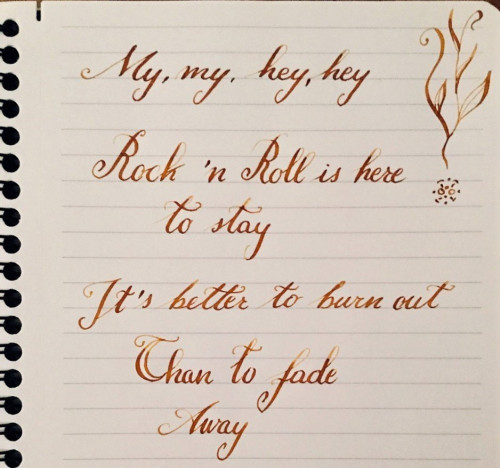 My, my, hey, hey
Rock 'n Roll is here
to stay
It's better to burn out
Than to fade
Away